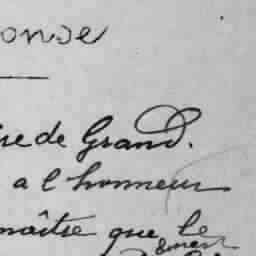 onse
re de Grand.
a l'honneur
naître que le